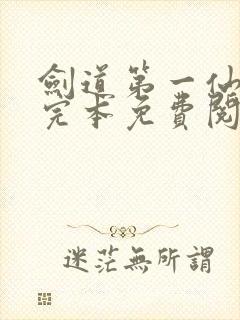 劍道第一仙
完本免費閱
迷茫無所謂